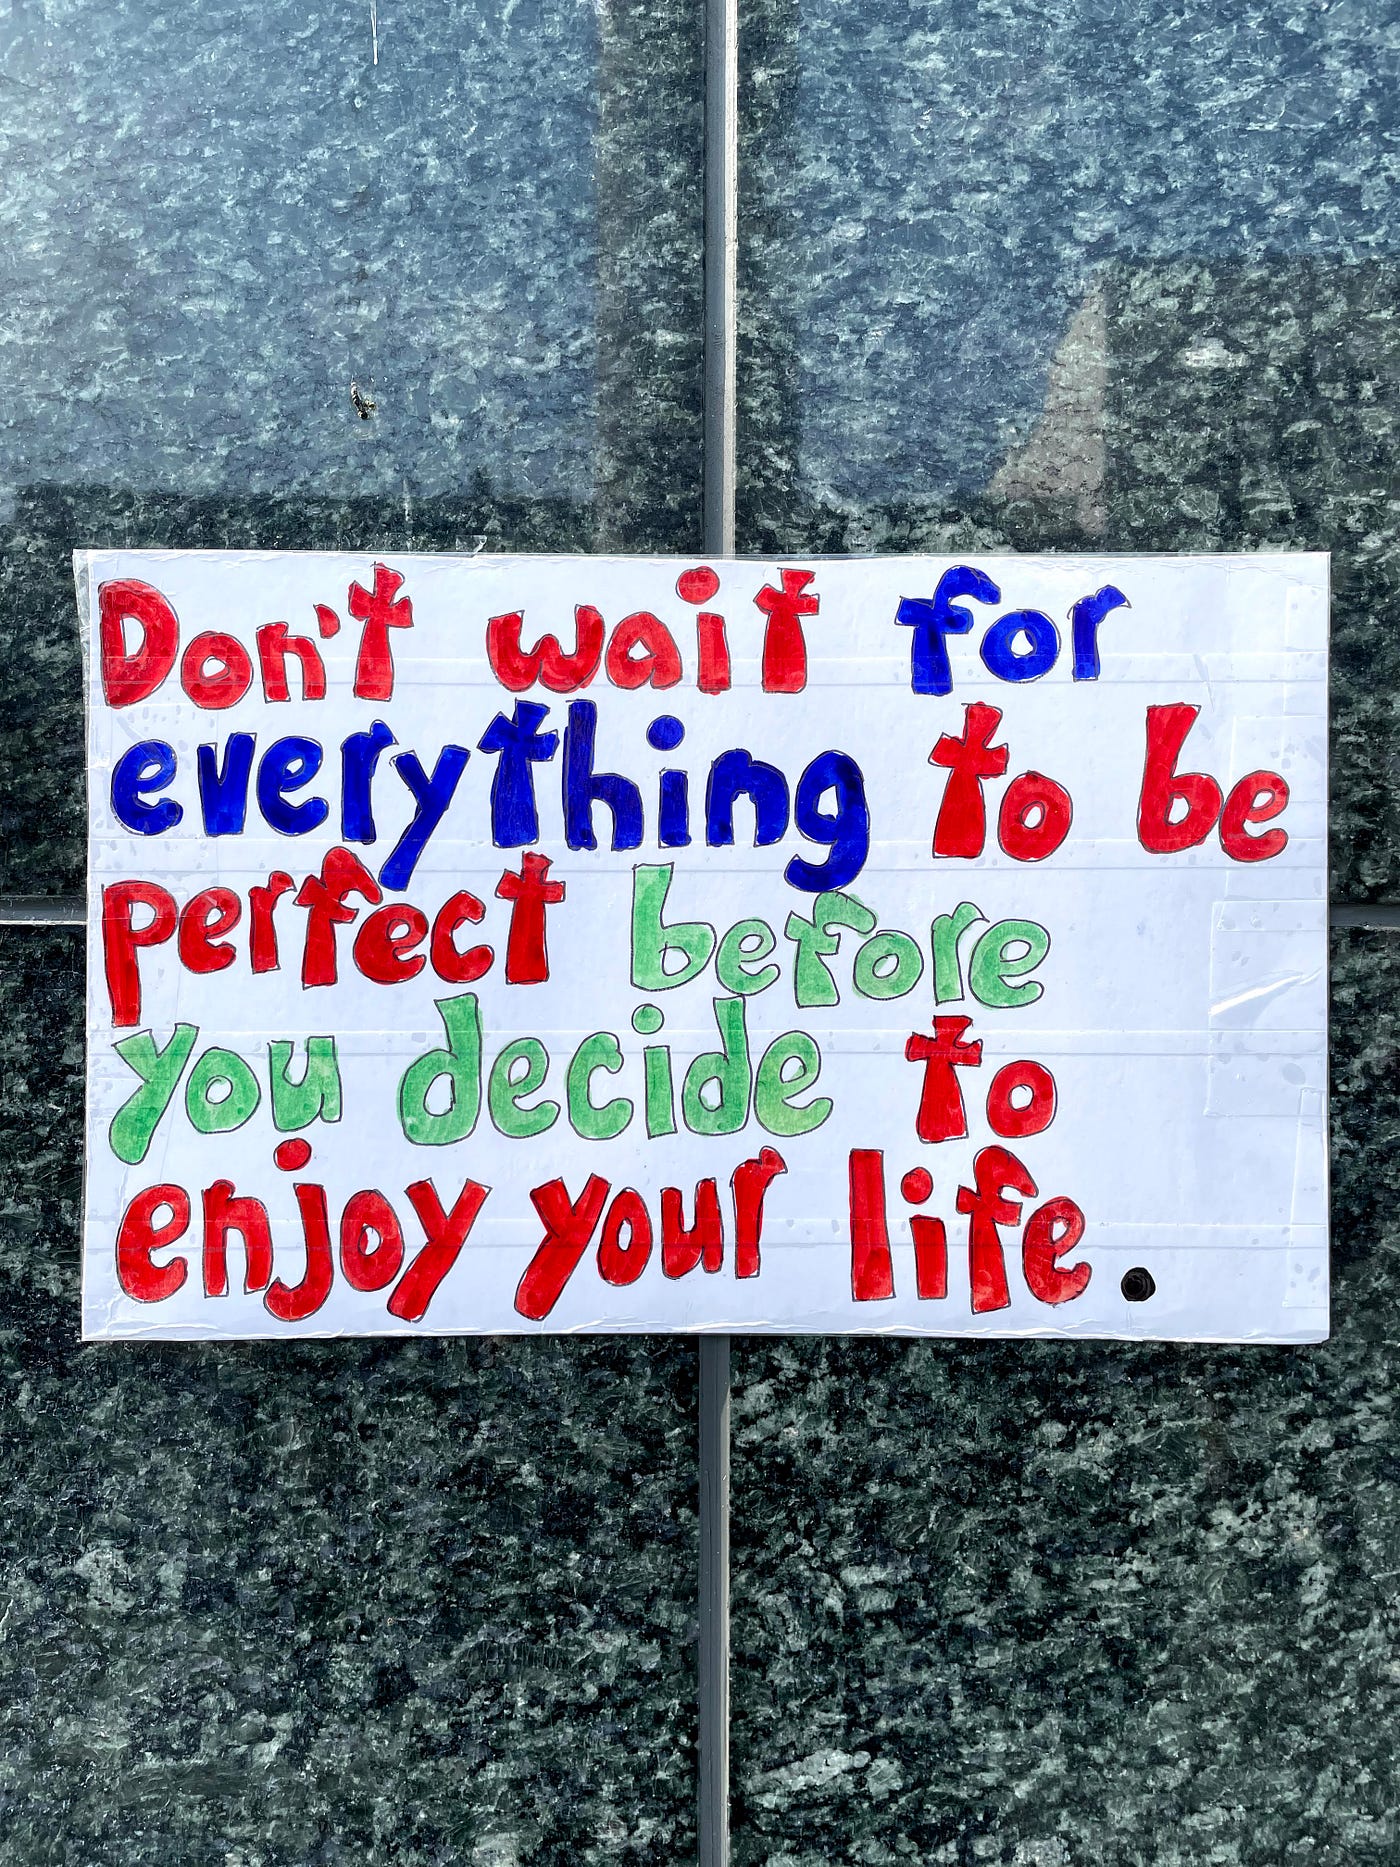 Don't wait for
everything to be
perfect before
you decide to
enjoy your life.